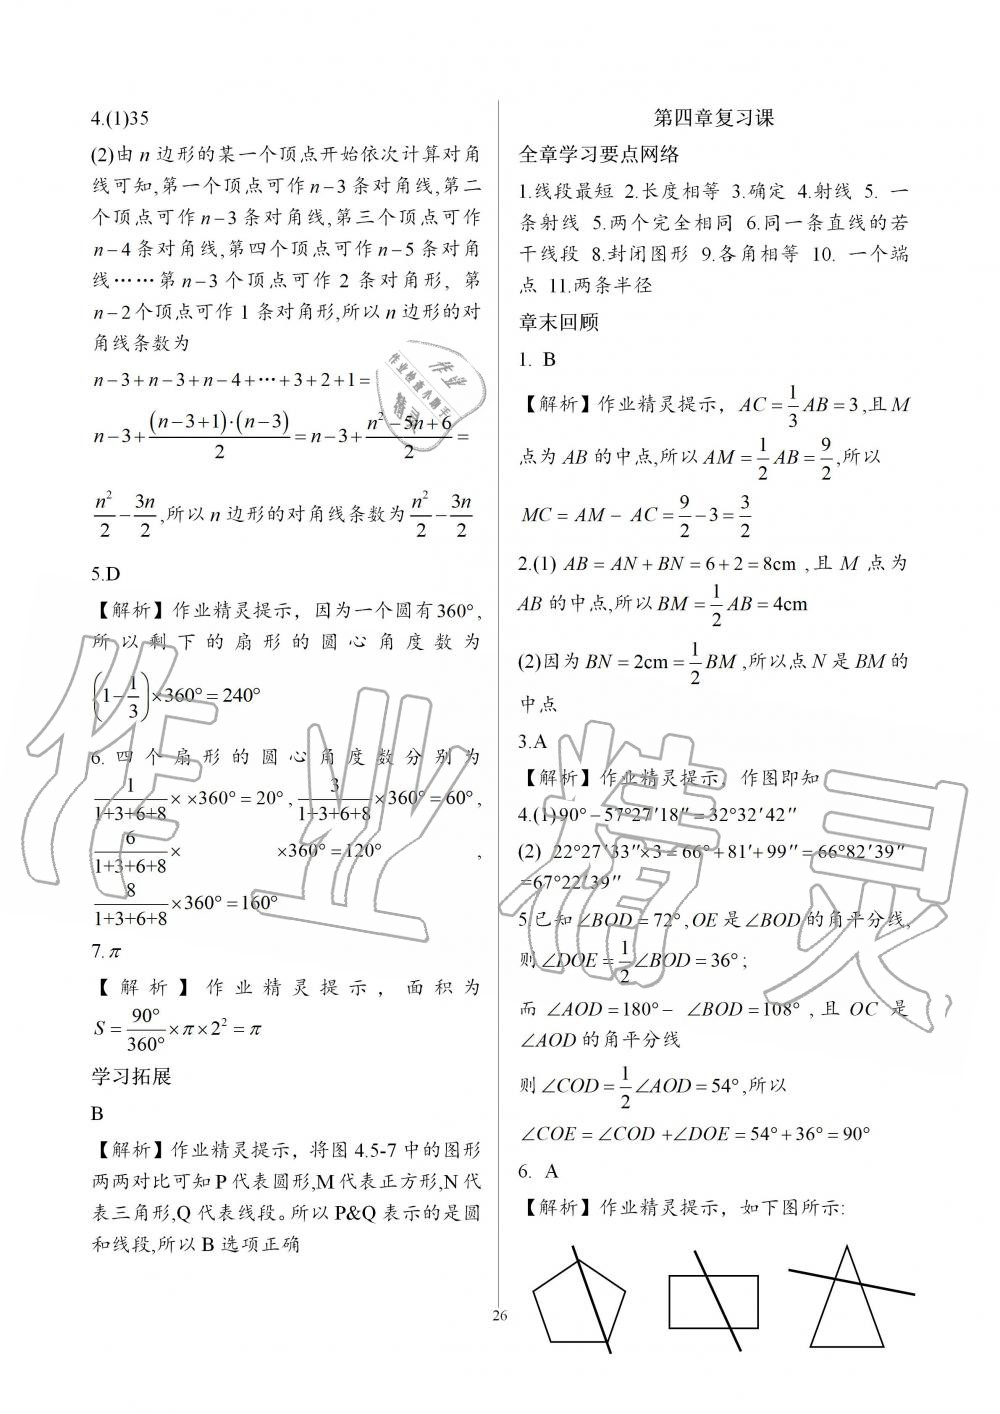 4.(1)35
(2)由 n 边形的某一个顶点开始依次计算对角
线可知,第一个顶点可作 n−3 条对角线,第二
个顶点可作 n−3 条对角线,第三个顶点可作
n−4 条对角线,第四个顶点可作 n−5 条对角
线……第 n−3 个顶点可作 2 条对角形, 第
n−2 个顶点可作 1 条对角形,所以 n 边形的对
角线条数为
n−3+n−3+n−4+···+3+2+1=
n−3+(n−3+1)·(n−3)/2=n−3+(n²−5n+6)/2=
n²/2−3n/2,所以 n 边形的对角线条数为 n²/2−3n/2
5.D
【解析】作业精灵提示，因为一个圆有360°,
所以剩下的扇形的圆心角度数为
(1−1/3)×360°=240°
6.四个扇形的圆心角度数分别为
1/(1+3+6+8)× ×360°=20°, 3/(1+3+6+8)×360°=60°,
6/(1+3+6+8)× ×360°=120° ,
8/(1+3+6+8)×360°=160°
7.π
【解析】作业精灵提示，面积为
S=90°/360°×π×2²=π
学习拓展
B
【解析】作业精灵提示，将图 4.5-7 中的图形
两两对比可知 P 代表圆形,M 代表正方形,N 代
表三角形,Q 代表线段。所以 P&Q 表示的是圆
和线段,所以 B 选项正确
第四章复习课
全章学习要点网络
1.线段最短 2.长度相等 3.确定 4.射线 5. 一
条射线 5.两个完全相同 6.同一条直线的若
干线段 8.封闭图形 9.各角相等 10. 一个端
点 11.两条半径
章末回顾
1. B
【解析】作业精灵提示，AC=1/3AB=3,且 M
点为 AB 的中点,所以 AM=1/2AB=9/2,所以
MC=AM− AC=9/2−3=3/2
2.(1) AB=AN+BN=6+2=8cm,且 M 点为
AB 的中点,所以 BM=1/2AB=4cm
(2)因为 BN=2cm=1/2BM,所以点 N 是 BM 的
中点
3.A
【解析】作业精灵提示，作图即知
4.(1)90°−57°27′18″=32°32′42″
(2) 22°27′33″×3=66°+81′+99″=66°82′39″
=67°22′39″
5 已知∠BOD=72°,OE 是∠BOD 的角平分线,
则∠DOE=1/2∠BOD=36°;
而 ∠AOD=180°− ∠BOD=108°,且 OC 是
∠AOD 的角平分线
则∠COD=1/2∠AOD=54°,所以
∠COE=∠COD +∠DOE=54°+36°=90°
6. A
【解析】作业精灵提示，如下图所示:
26
作业精灵
作业
作业检查小助手
精灵